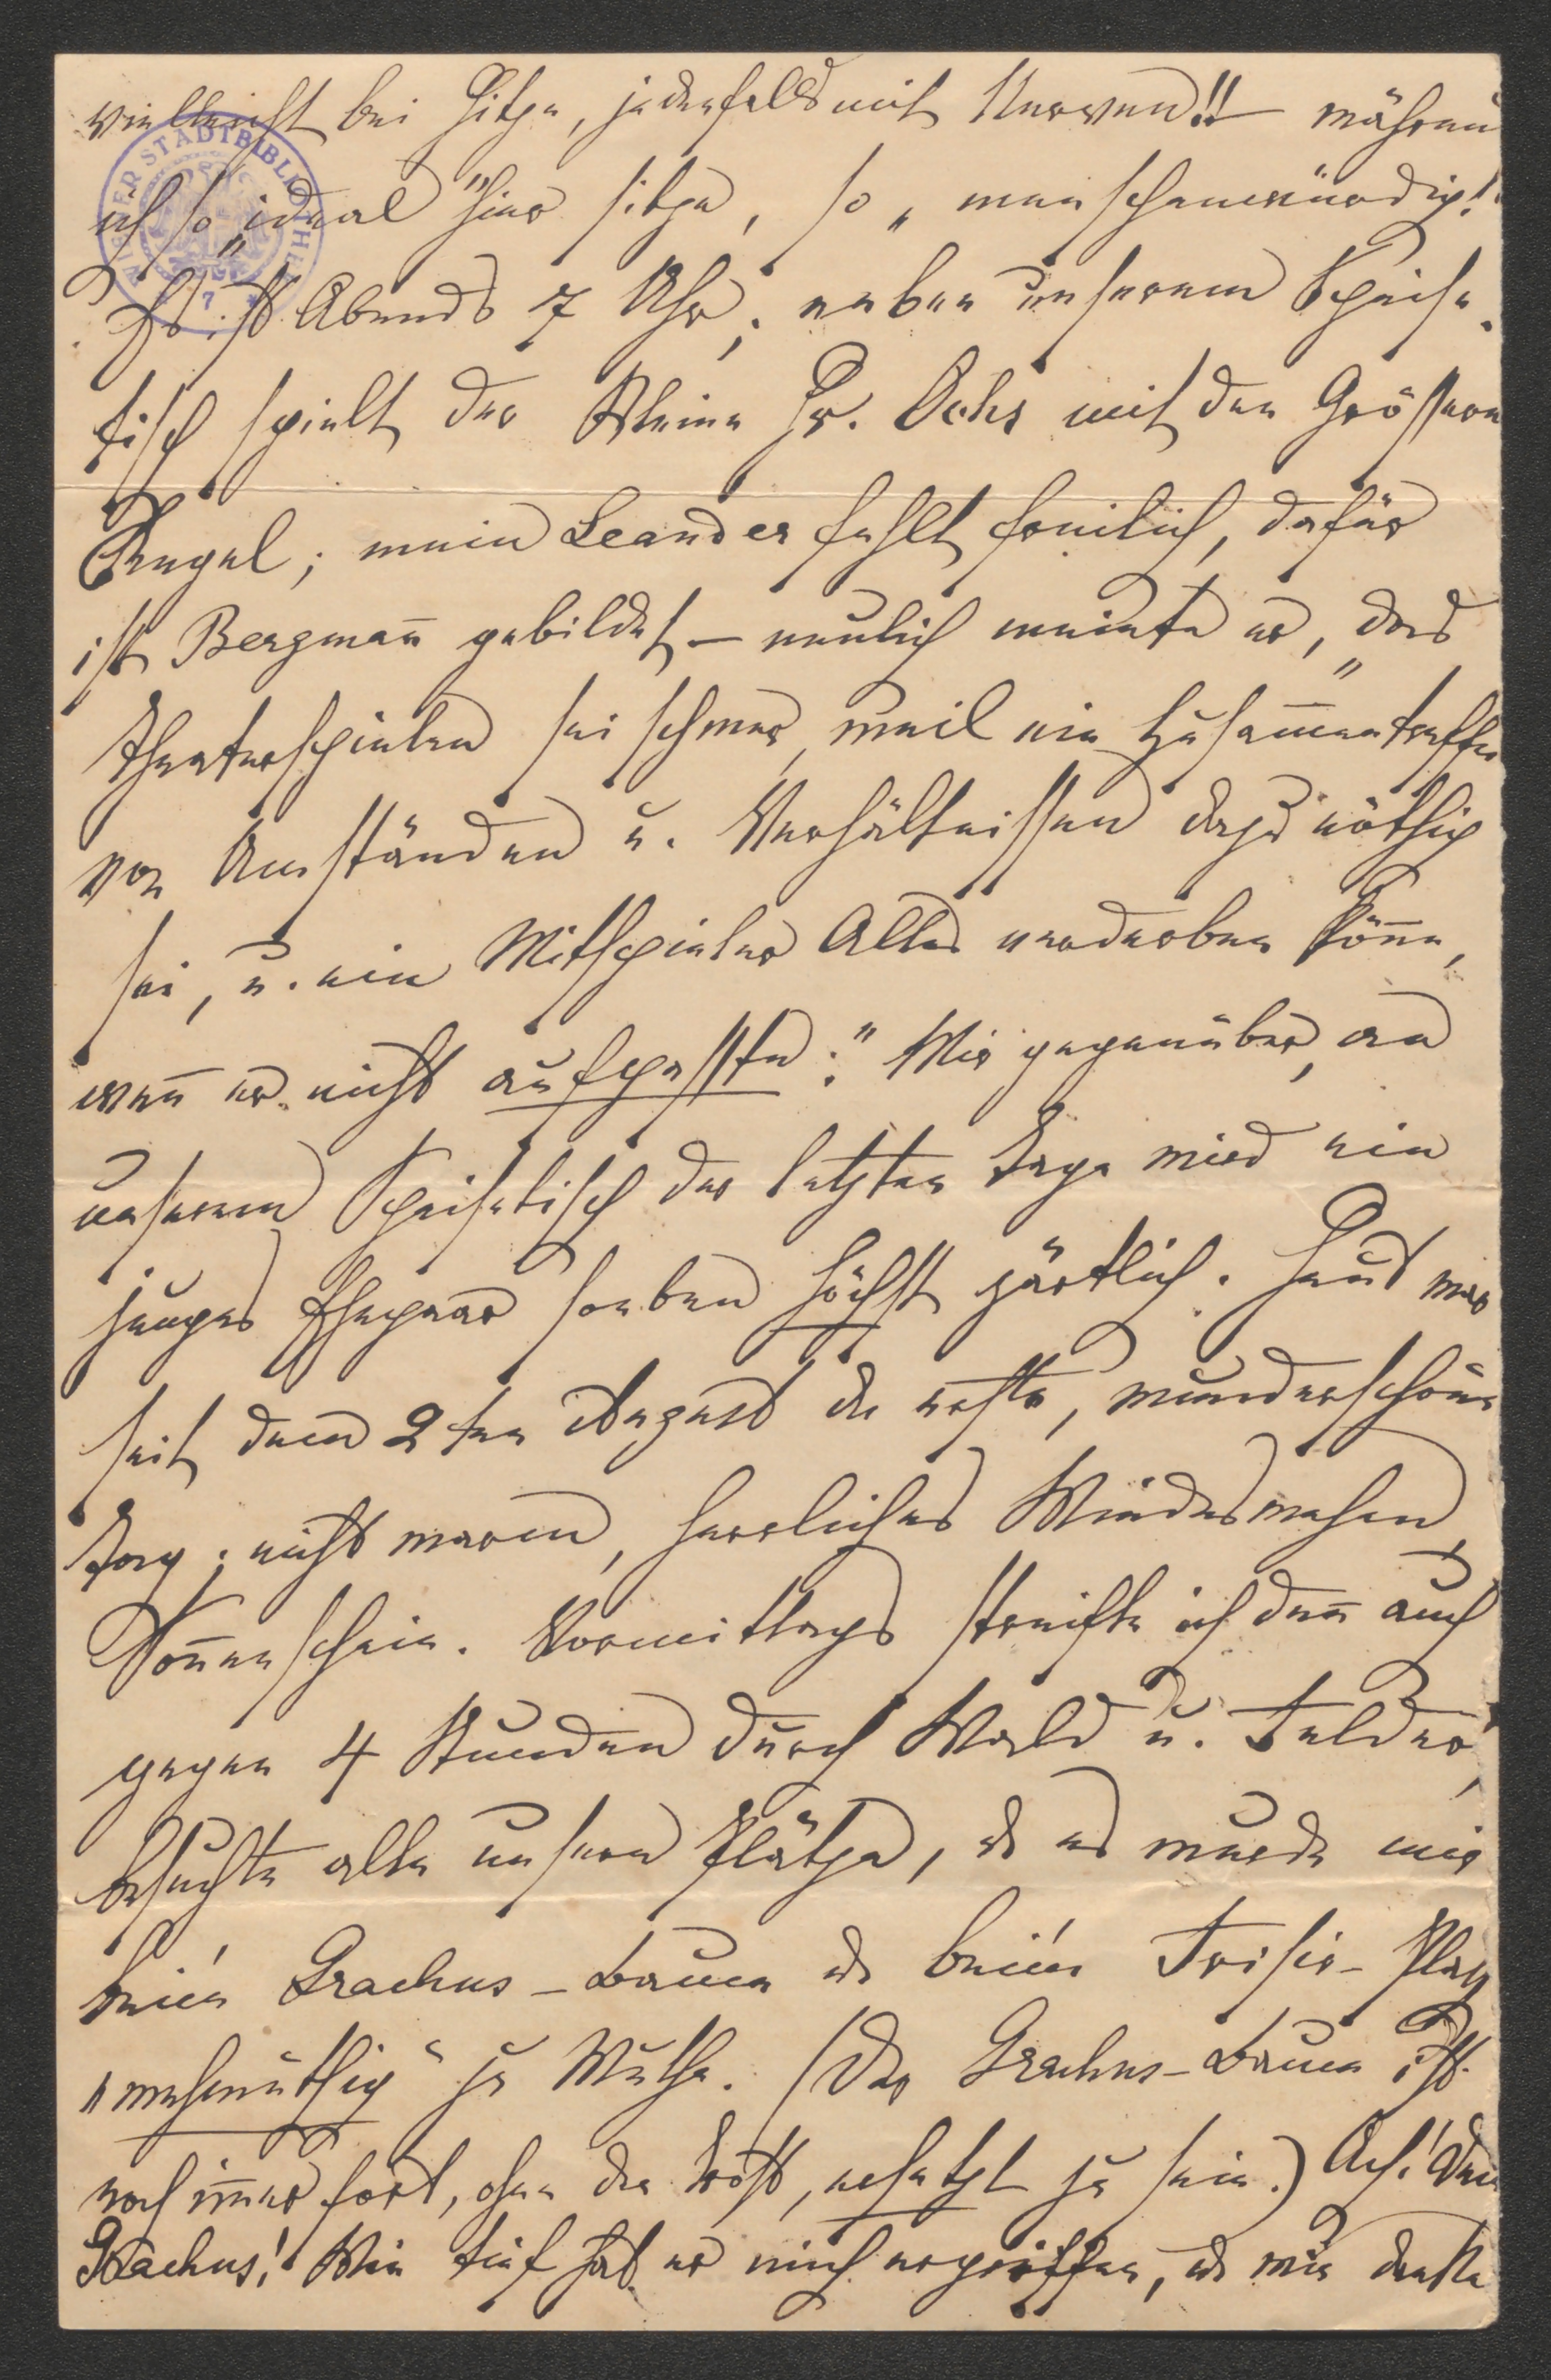 vielleicht bei Hitze, jedenfalls mit Nerven!! während
ich so „ideal" hier sitze, so „menschenwürdig!"
Es ist Abends 7 Uhr; neben unserem Speise-
tisch spielt der Kleine Hr. Ochs mit den Grössern
Engel; mein Leander fehlt freilich, dafür
ist Bergman̄ gebildet – neulich meinte er, „das
Theaterspielen sei schwer, weil ein Zusam̄entreffen
von Umständen u. Verhältnissen dazu nöthig
sei, u. ein Mitspieler Alles verderben kön̄e,
wen̄ er nicht aufpasste." Mir gegenüber, an
unserem Speisetisch der letzten Tage wird ein
junges Ehepaar soeben höchst zärtlich. Heut war
seit dem 2ten August der erste, wunderschöne
Tag; nicht warm, herrliches Windeswehen,
Son̄enschein. Vormittags streifte ich den̄ auch
gegen 4 Stunden durch Wald u. Felder,
besuchte alle unsere Plätze, u. es wurde mir
beim Grachus-Baum u. beim Frisir-Platz
„wehmüthig" zu Muthe. (Der Grachus-Baum ist
noch im̄er fort, ohne den Trost, ersetzt zu sein.) Ach! Dein
Grachus! Wie tief hat er mich ergriffen, u. wie dankte
WIENER STADTBIBLIOTHEK